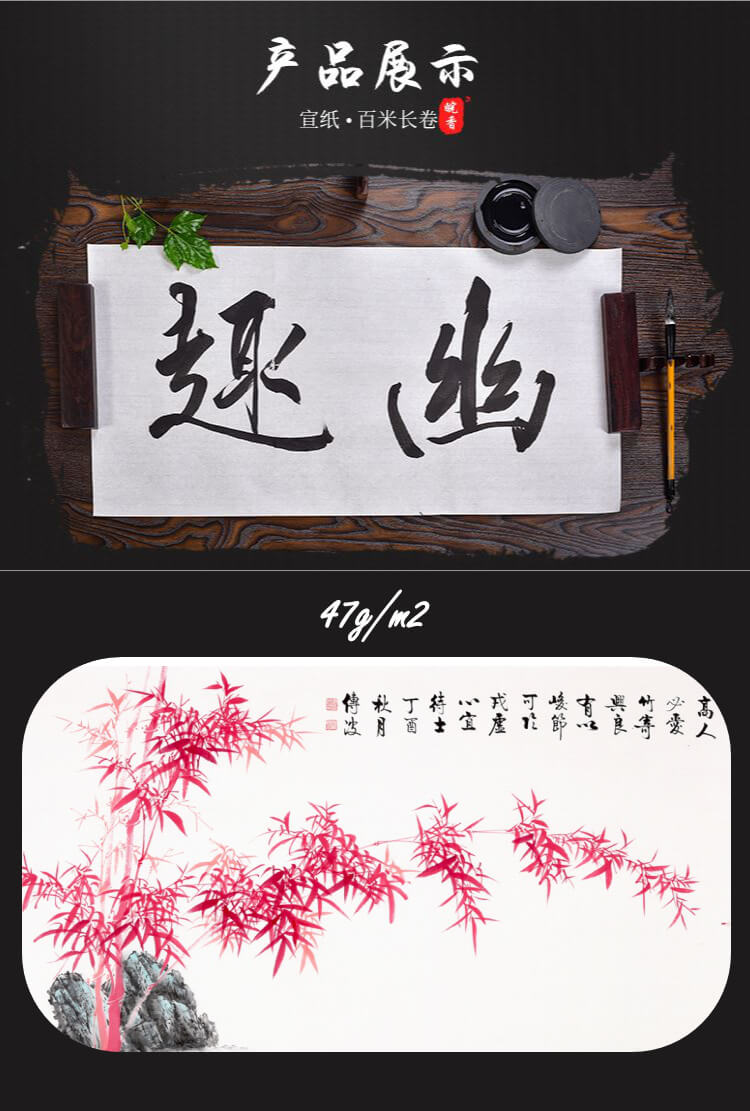 产品展示
宣纸•百米长卷
皖香
幽趣
47g/m2
高人
必愛
竹寄
興良
有以
峻節
可臨
戎虛
心宜
待士
丁酉
秋月
傳波